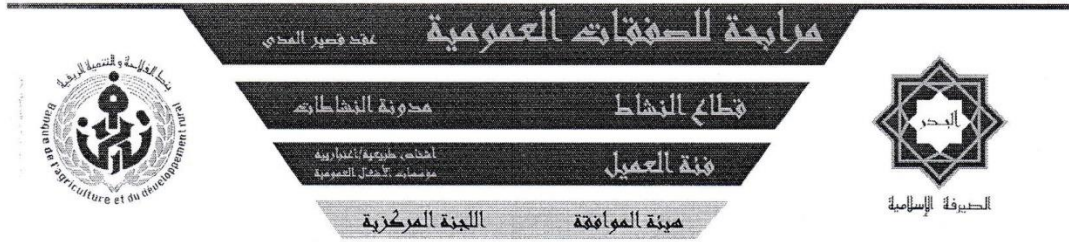 مرابحة للصفقات العمومية عقد قصير المدى
قطاع النشاط مدونة النشاطات
فئة العميل أشخاص طبيعية/اعتبارية
مؤسسات الأشغال العمومية
هيئة الموافقة اللجنة المركزية
البدر
الصيرفة الإسلامية
بنك الفلاحة و التنمية الريفية
Banque de l'agriculture et du développement rural